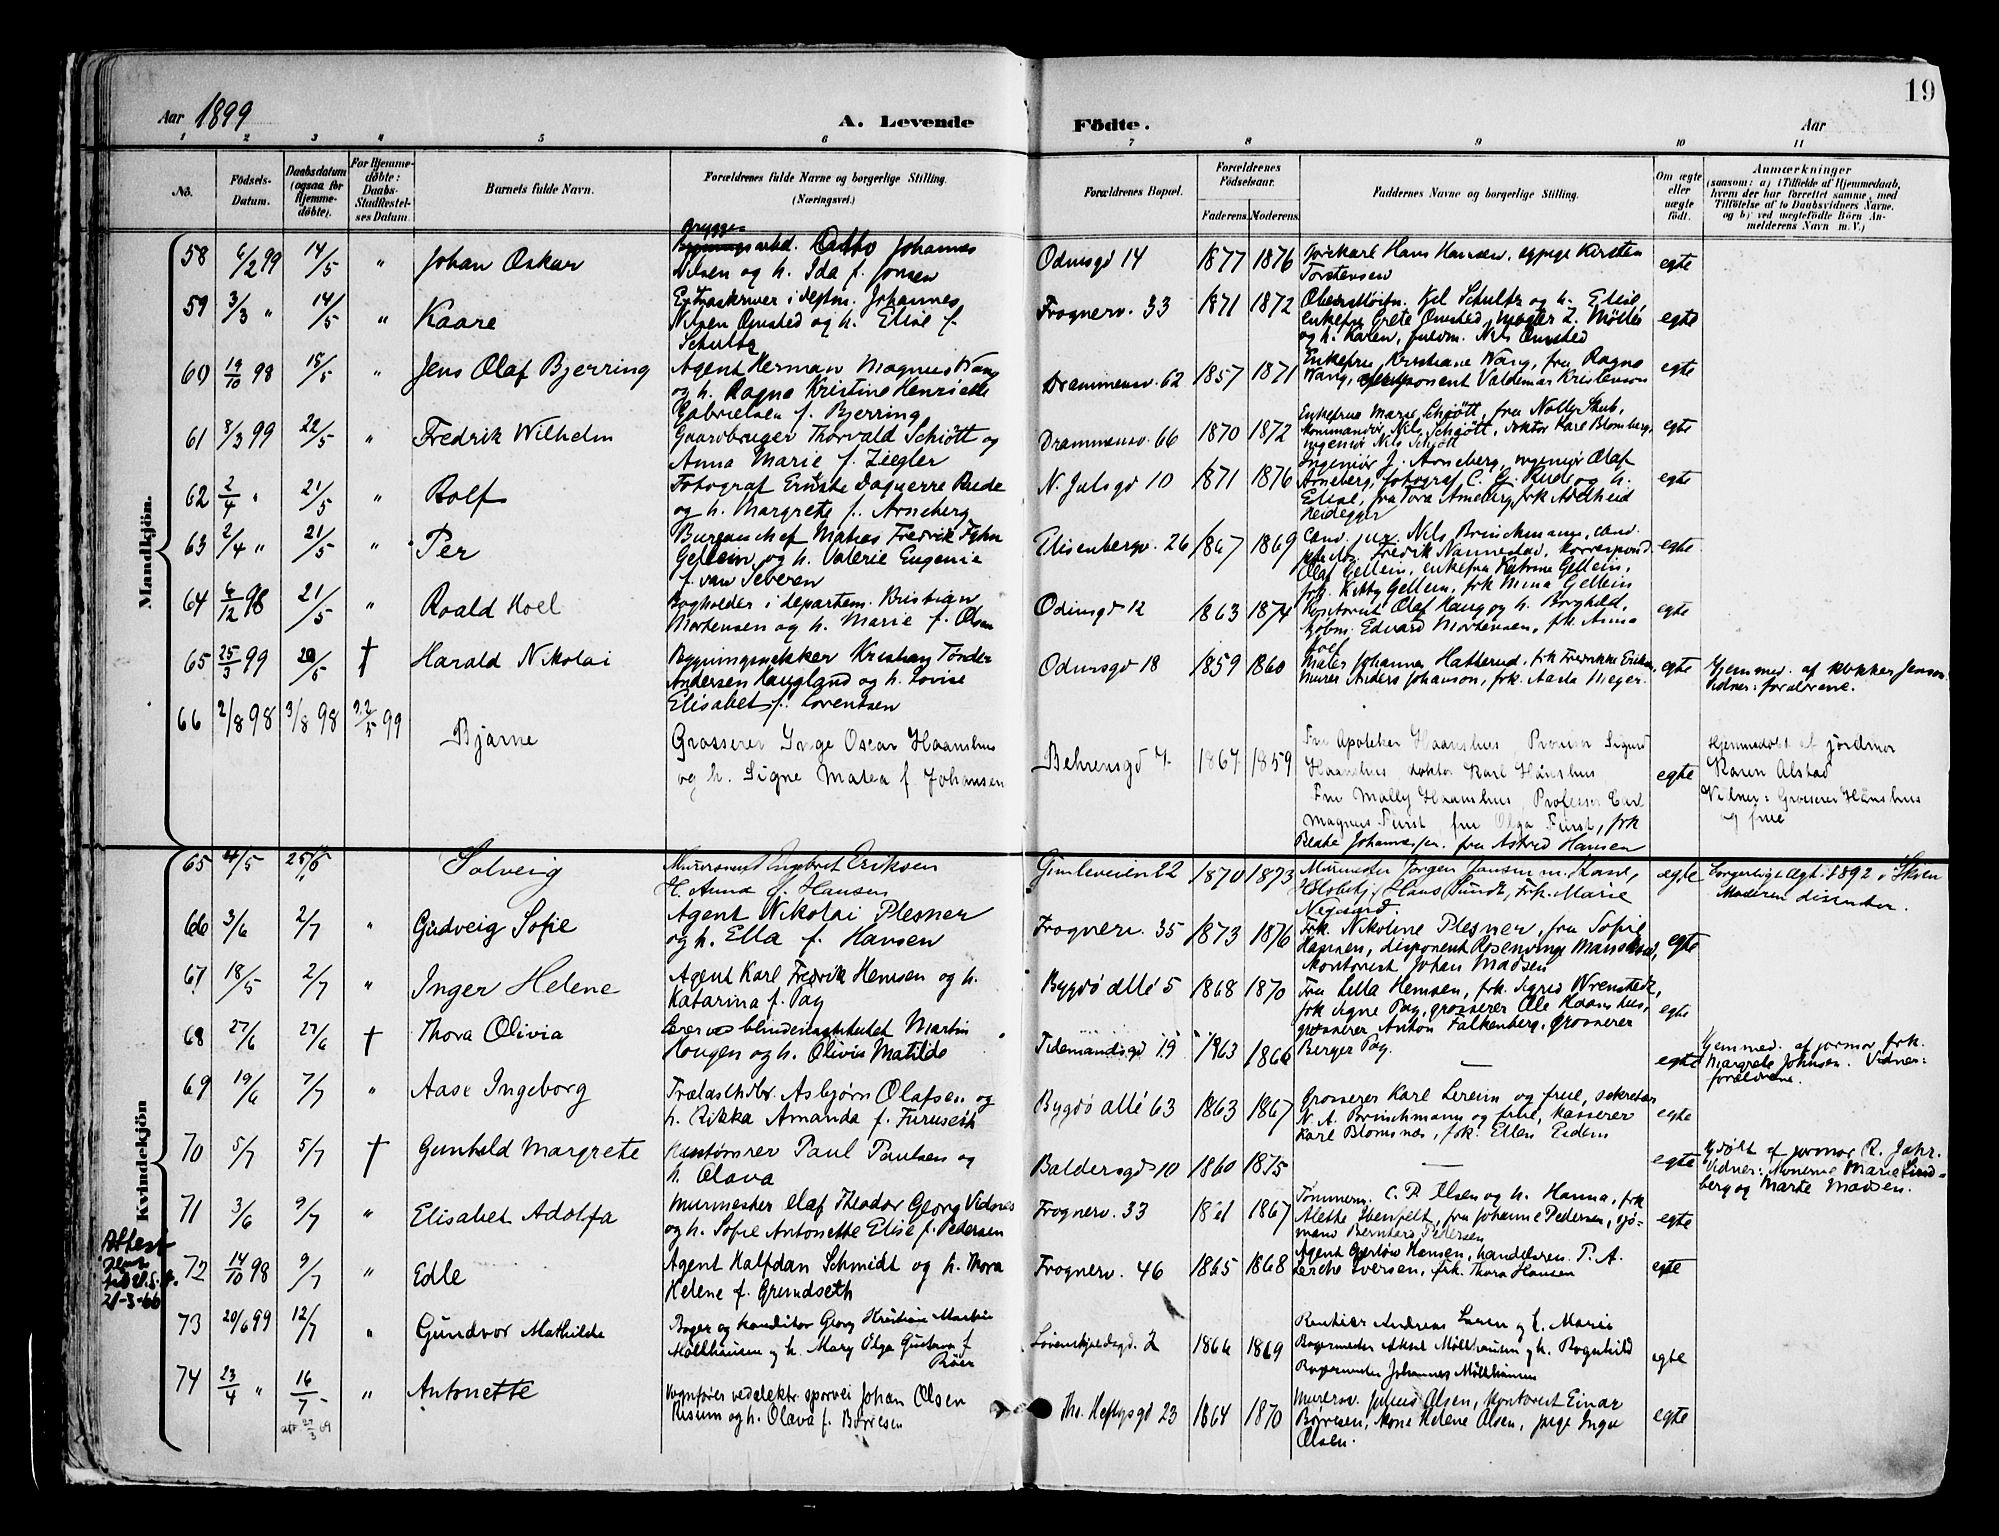 19
Aar 1899 A. Levende Födte. Aar
1 2 3 4 5 6 7 8 9 10 11
No. Födsels-Datum. Daabsdatum (ogsaa för Hjemme-döbte). For Hjemme-döbte: Daabs-Stadfæstel-ses Datum. Barnets fulde Navn. Forældrenes fulde Navne og borgerlige Stilling. (Næringsvei.) Forældrenes Bopæl. Forældrenes Födselsaar. Faderens. Moderens. Faddernes Navne og borgerlige Stilling. Om ægte eller uægte født. Anmærkninger
(saasom: a) i Tilfælde af Hjemmedaab, hvem der har forrettet samme, med Tilföielse af to Daabsvidners Navne. og b) ved uægtefödte Börn An-melderens Navn m. V.)
Mandkjön.
58 6/2 99 14/5 " Johan Oskar
Brygge arbd. Otto Johannes
Nilsen og h. Ida f. Jonsen
Odinsgd 14 1877 1876
Hans Hansen, pige Kirsten
Torstensen
egte
59 3/3 " 14/5 " Kaare
Extraskriver i deptm. Johannes
Nilsen Ømsted og h. Elise f.
Schultz
Frognerv. 33 1871 1872
Schultz og h. Elise,
enkefru Grete Ømsted,
og h. Karen, Nils Ømsted
egte
60 19/10 98 15/5 " Jens Olaf Bjerring
Agent Herman Magnus Wang
og h. Ragna Kristine Henriette
Gabrielsen f. Bjerring
Drammensv. 62 1857 1871
Enkefru Kristiane Wang, fru Ragna
Wang, Valdemar Kristenson
egte
61 8/3 99 22/5 " Fredrik Wilhelm
Gaardbruger Thorvald Schiøtt og
Anna Marie f. Ziegler
Drammensv. 66 1870 1872
Enkefrue Marie Schiøtt, fru Nolly Skub,
kommandør Nils Schiøtt, doktor Karl Blomberg,
ingeniør Nils Schiøtt
egte
62 2/4 " 21/5 " Rolf
Fotograf Ernste Daguerre Rude
og h. Margrete f. Arneberg
N. Julsgd 10 1871 1876
Ingeniør J. Arneberg, ingeniør Olaf
Arneberg, fotograf C. G. Rude og h.
Elise, fru Tora Arneberg, frk Adelheid
Heidegger
egte
63 2/4 " 21/5 " Per
Bureauchef Matias Fredrik Fyhn
Gellein og h. Valerie Eugenie
f. van Severen
Elisenbergv. 26 1867 1869
Cand. jur. Nils Brinchmann, cand.
Fredrik Nannestad, korrespond.
Olaf Gellein, enkefru Katrine Gellein,
frk. Kitty Gellein, frk Mina Gellein
egte
64 6/12 98 21/5 " Roald Hoel
Bogholder i departem. Kristian
Mortensen og h. Marie f. Olsen
Odinsgd 12 1863 1874
Kontorist Olaf Haug og h. Borghild,
kjøbm. Edvard Mortensen, frk Anna
Hoel
egte
65 25/3 99 20/5 † Harald Nikolai
Bygningssnekker Kristian Tønder
Andersen Haugland og h. Lovise
Elisabet f. Lorentsen
Odinsgd 18 1859 1860
Maler Johannes Hatterud, frk Fredrikke Eriksen,
murer Anders Johanson, frk. Aasta Meyer.
egte
Hjemmed. af klokker Jenson
Vidner: foreldrene.
66 2/8 98 3/8 98 22/5 99 Bjarne
Grosserer Inge Oscar Haanshus
og h. Signe Matea f. Johansen
Behrensgd 7 1867 1859
Fru Apoteker Haanshus, Provisor Sigurd
Haanshus, doktor Karl Hånshus
Fru Molly Haanshus, Professor Carl
Magnus Fürst fru Olga Fürst, frk
Beate Johannesen. fru Astrid Hansen
egte
Hjemmedøbt af jordmor
Karen Alstad
Vidner: Grosserer Hånshus
og frue
Kvindekjön
65 4/5 25/6 Solveig
Murersvend Engebret Eriksen
H. Anna f. Hansen
Gimleveien 22 1870 1873
Murmester Jørgen Jansen m. Kone,
Hans Lundt, Frk. Marie
Negaard.
egte
Borgerligt Ægt. 1892 i Skien
Moderen dissenter.
66 3/6 2/7 " Gudveig Sofie
Agent Nikolai Plesner
og h. Ella f. Hansen
Frognerv. 35 1873 1876
Frk. Nikoline Plesner, fru Sofie
Hansen, disponent Rosenvinge
Kontorist Johan Madsen
egte
67 18/5 2/7 " Inger Helene
Agent Karl Fredrik Hemsen og h.
Katarina f. Pay
Bygdø allé 5 1868 1870
Fru Lilla Hemsen, frk. Sigrid Wrenstedt,
frk Signe Pay, grosserer Ole Haanshus,
grosserer Anton Falkenberg, grosserer
Berger Pay.
egte
68 27/6 27/6 † Thora Olivia
Lærer ved blindeinstitutet Martin
Haugen og h. Olivia Matilde
Tidemandsgd 19 1863 1866
egte
Hjemmed. af jormor frk.
Margrete Johnsen. Vidner:
foreldrene.
69 19/6 7/7 " Aase Ingeborg
Trælasthdlr. Asbjørn Olafsen og
h. Rikka Amanda f. Furuseth
Bygdø allé 63 1863 1867
Grosserer Karl Lereim og frue, sekretær
N. A. Brinchmann og frue, kasserer
Karl Blomsnæs, frk. Ellen Eidem
egte
70 5/7 5/7 † Gunhild Margrete
Paul Paulsen og
h. Olava
Baldersgd 10 1860 1875
—
egte
Hjdøbt af jormor R. Jahr.
Vidner: Konerne Marie Lind-
berg og Marte Madsen.
71 3/6 9/7 " Elisabet Adolfa
Murmester Olaf Theodor Georg Vidnes
og h. Sofie Antonette Elise f. Pedersen
Frognerv. 33 1861 1867
Tømmerm. C. P. Olsen og h. Hanna, frk
Alette Ibenfelt, fru Johanne Pedersen, sjø-
mand Bernhard Pedersen
egte
Attest
21-3-66
72 14/10 98 9/7 " Edle
Agent Halfdan Schmidt og h. Thora
Helene f. Grundseth
Frognerv. 46 1865 1868
Agent Gerløw Hansen, handelsren. P. A.
Lerche Iversen, frk. Thora Hansen
egte
73 20/6 99 12/7 " Gundvor Mathilde
Bager og konditor Georg Kristian Martin
Möllhausen og h. Mary Olga Gustava f.
Röer
Løvenskjoldsgd. 2 1866 1869
Rentier Andreas Loren og h. Marie
Bagermester Aksel Möllhausen og h. Ragnhild
Bagermester Johannes Möllhausen
egte
74 23/4 " 16/7 " Antonette
Vognfører ved elektr. sporvei Johan Olsen
Risum og h. Olava f. Børresen
Tho. Heftyesgd 23 1864 1870
Murersv. Julius Olsen, Kontorist Einar
Børresen, kone Helene Olsen, pige Inga
Olsen.
egte
att 27/3 69